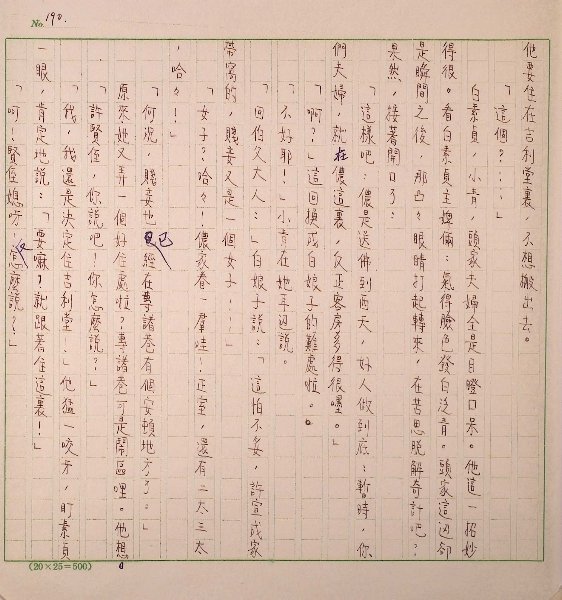 No. 190.
他要住在吉利堂裏，不想搬出去。
「這個？！」
白素貞，小青，頭家夫婦全是目瞪口呆。他這一招妙
得很。看白素貞主婢倆：氣得臉色發白泛青。頭家這迌卻
是瞬間之後，那凸々眼睛打起轉來，在苦思脫解奇計吧？
果然，接著開口了：
「這樣吧：儂是送佛到西天，好人做到底：暫時，你
們夫婦，就在儂這裏，反正客房多得很哩。」
「啊？」這回換成白娘子的難處啦。
「不好耶！」小青在她耳迌說。
「回伯父大人：」白娘子說：「這怕不妥，許宣成家
帶宿的，賤妾又是一個女子…」
「女子？哈々！儂家眷一羣哇！正室，還有二太三太
，哈々！」
「何況，賤妾也已經在專諸巷有個安頓地方了。」
原來她又弄一個好住處啦？專諸巷可是鬧區哩。他想。
「許賢侄，你說吧！你怎麼說？」
「我，我還是決定住吉利堂！」他猛一咬牙，盯素貞
一眼，肯定地說：「要嘛？就跟著住這裏！」
「呵！賢侄媳呀！怎麼說？」
(20×25=500)